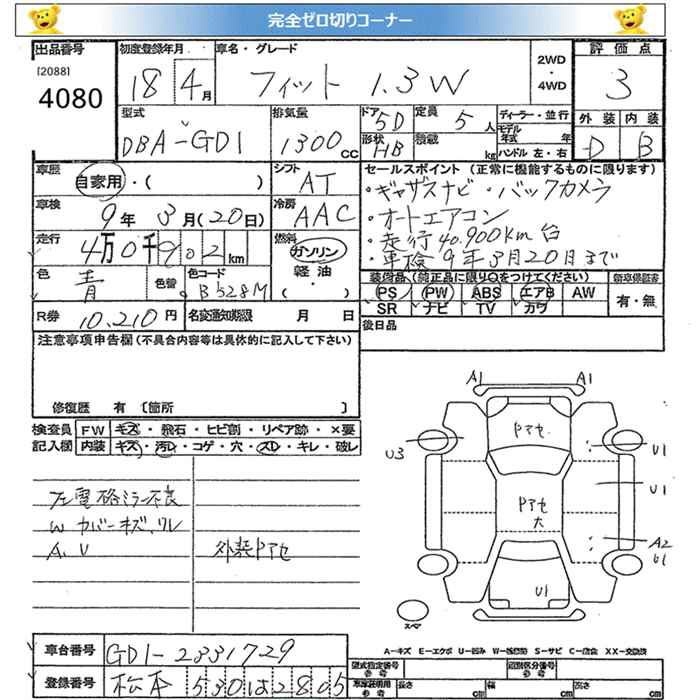 完全ゼロ切りコーナー
出品番号 初度登録年月 車名・グレード 2WD・4WD 評価点
[2088] 4080 18 4月 フィット 1.3W 3
型式 排気量 ドア 定員 ディーラー・並行 外装 内装
DBA-GD1 1300cc 5D 5人 モデル年式 年 D B
形状 HB 積載 kg ハンドル 左・右
車歴 自家用・( ) シフト AT セールスポイント(正常に機能するものに限ります)
・ギャザズナビ・バックカメラ
車検 9年3月(20日) 冷房 AAC ・オートエアコン
走行 4万0千902km 燃料 ガソリン 軽油・( ) ・走行40,900km台
・車検9年3月20日まで
色 青 色替 色コード B528M 装備品(純正品に限り○をつけてください) 新車保証書
PS PW ABS エアB AW 有・無
SR ナビ TV カワ
R券 10,210円 名変通知期限 月 日 後日品
注意事項申告欄(不具合内容等は具体的に記入して下さい)
修復歴 有 〔箇所 〕
検査員 FW キズ・飛石・ヒビ割・リペア跡・×要
記入欄 内装 キズ・汚レ・コゲ・穴・スレ・キレ・破レ
左電格ミラー不良
W カバーキズ、ワレ
A、U 外装Pアセ
A1 A1
Pアセ
U3 U1
U1
Pアセ大
A2
U1
U1
スペア
A-キズ E-エクボ U-凹み W-補修跡 S-サビ C-腐食 XX-交換済
車台番号 GD1-2331729 型式指定番号 参考 類別区分番号 参考
登録番号 松本 530 は 2805 車庫証明用 参考 長さ cm 幅 cm 高さ cm